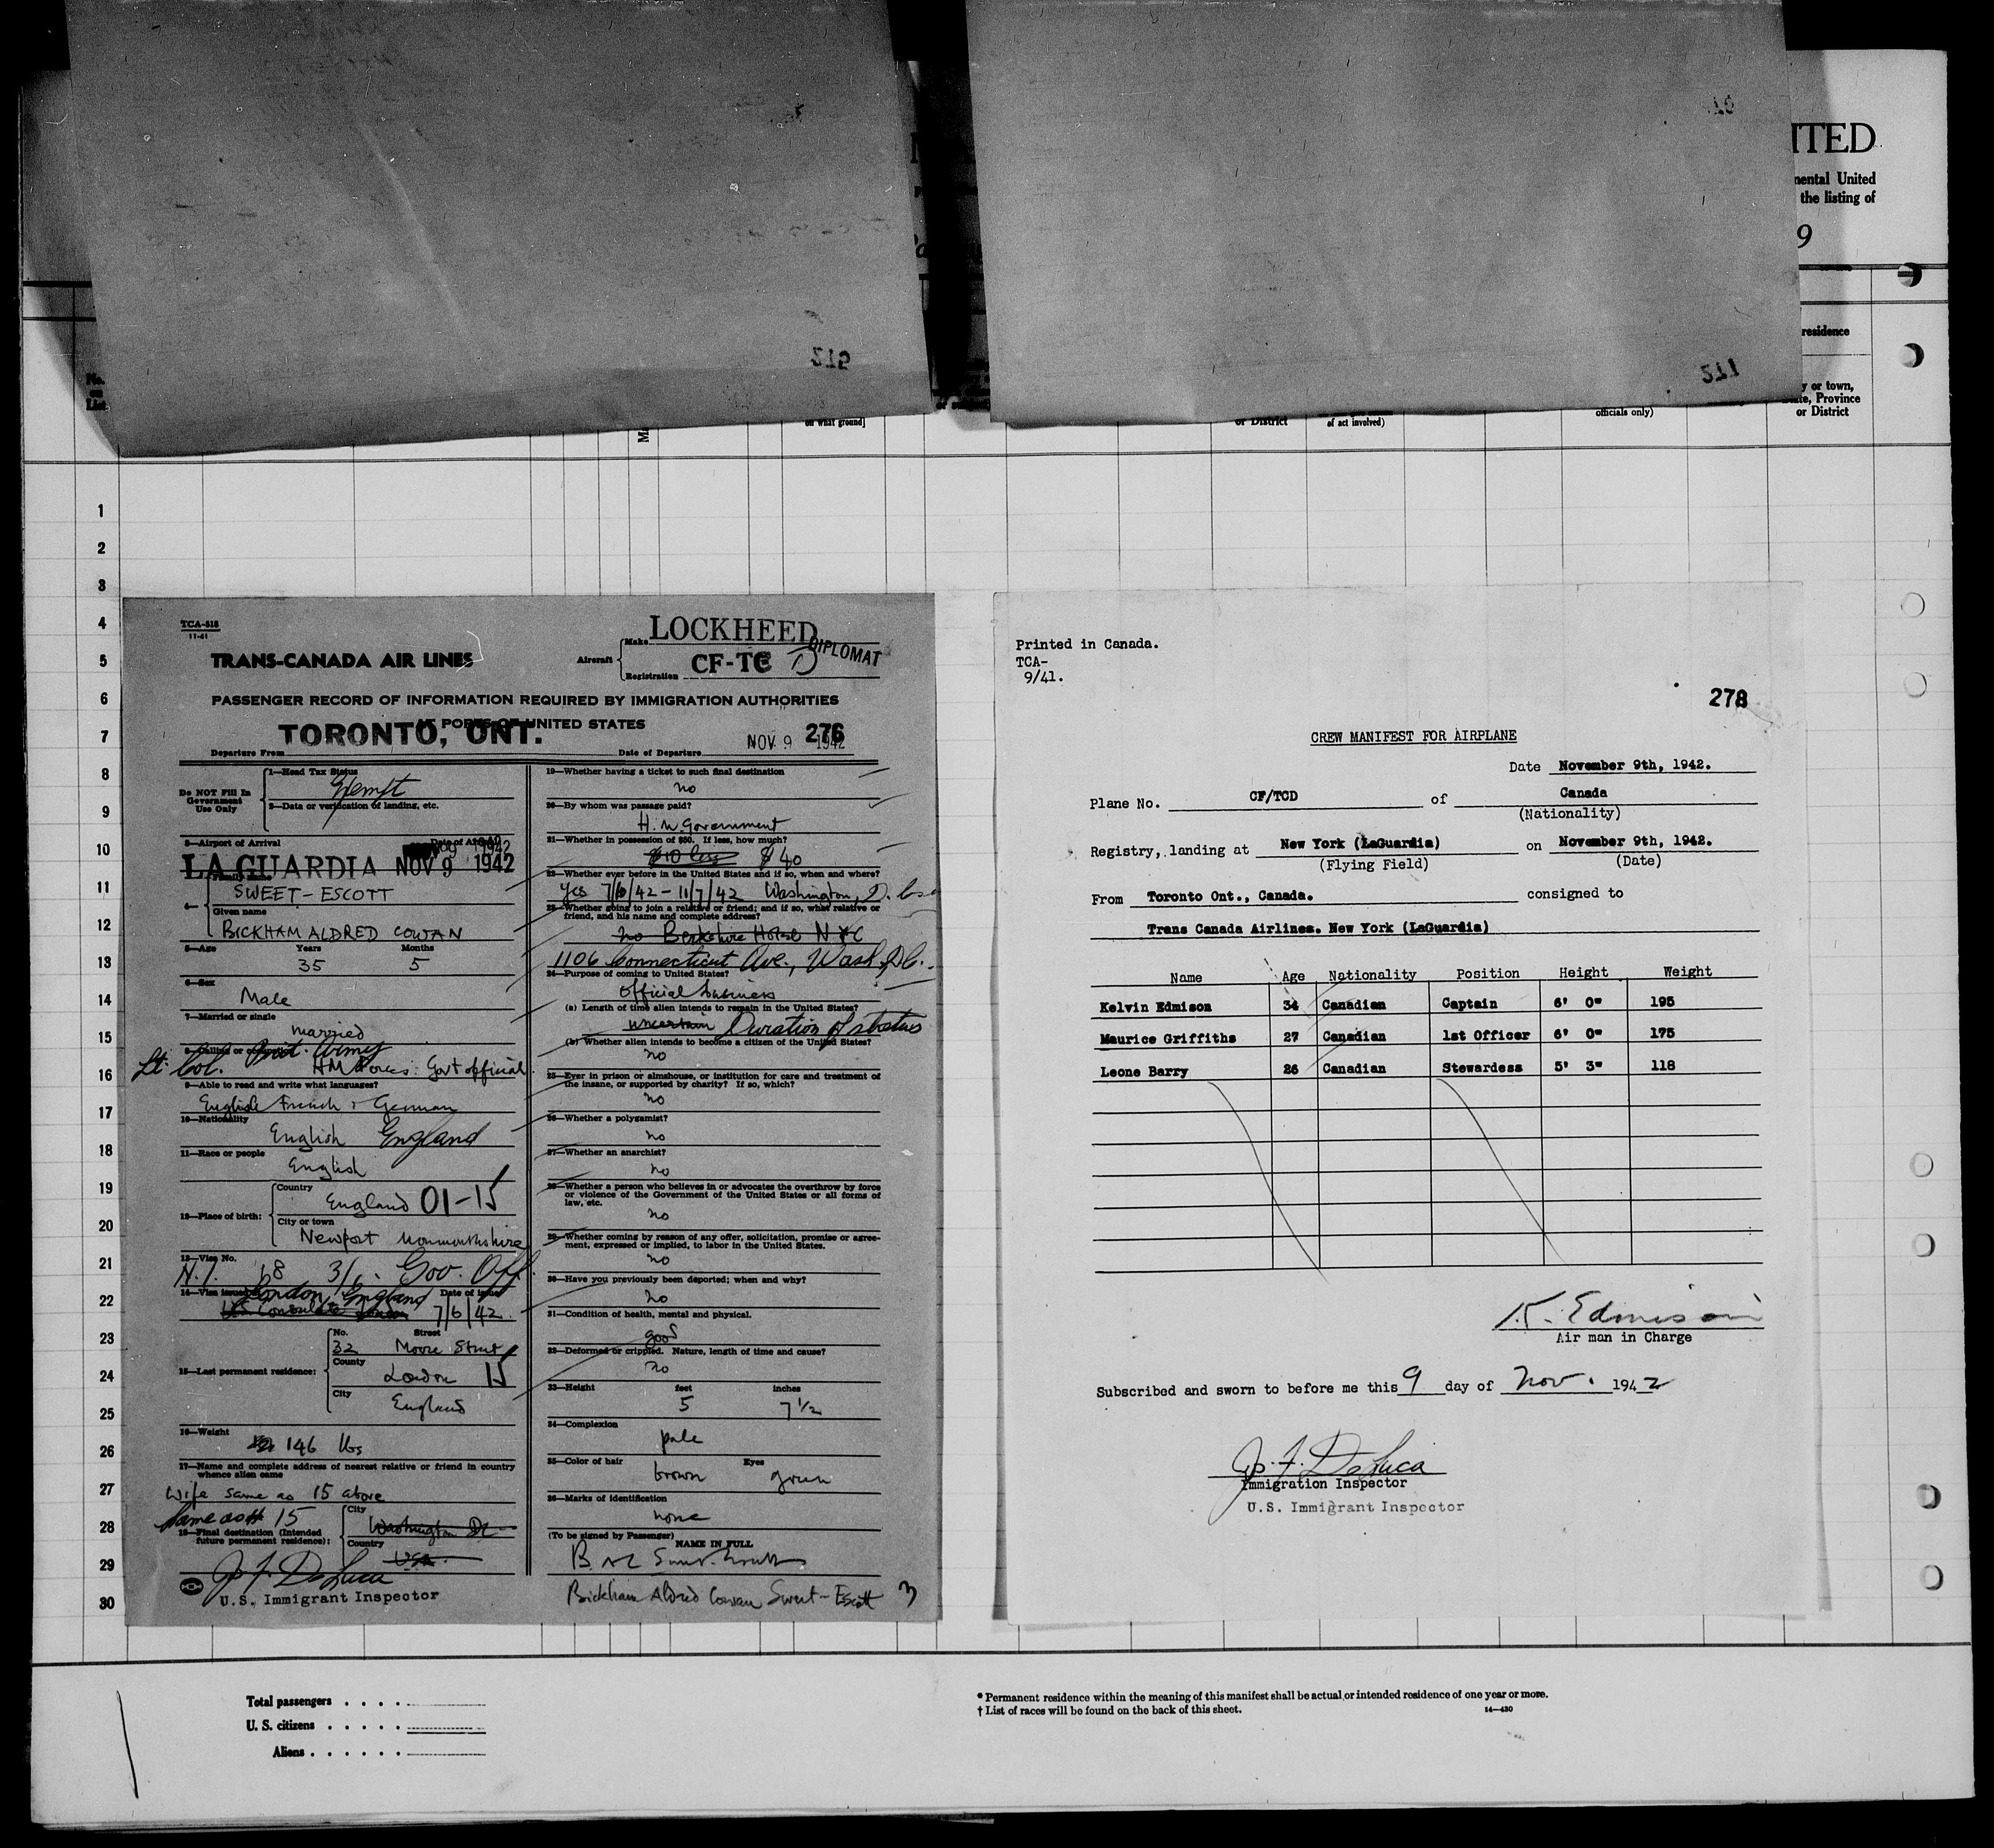 ITED
nental United
the listing of
9
residence
y or town,
te, Province
or District
officials only)
or District
of act involved)
on what ground]
No.
on
List
1
2
3
4
5
6
7
8
9
10
11
12
13
14
15
16
17
18
19
20
21
22
23
24
25
26
27
28
29
30
TCA-518
11-41
TRANS-CANADA AIR LINES
Aircraft
Make LOCKHEED
DIPLOMAT
CF-TC D
Registration
PASSENGER RECORD OF INFORMATION REQUIRED BY IMMIGRATION AUTHORITIES
AT PORTS OF UNITED STATES
TORONTO, ONT.
276
Departure From
Date of Departure NOV 9 1942
Do NOT Fill In
Government
Use Only
1—Head Tax Status
Exempt
2—Data or verification of landing, etc.
3—Airport of Arrival
Date of Arrival
LA GUARDIA NOV 9 1942
4—
Family name
SWEET-ESCOTT
Given name
BICKHAM ALDRED COWAN
5—Age Years Months
35 5
6—Sex
Male
7—Married or single
married
8—Calling or occupation
Lt. Col. Brit. Army
HM Forces: Govt official
9—Able to read and write what languages?
English French + German
10—Nationality
English England
11—Race or people
English
12—Place of birth:
Country
England 01-15
City or town
Newport Monmouthshire
13—Visa No.
N.I. 68 3/6. Gov. Off
14—Visa issued
London, England
US Consulate London
Date of issue
7/6/42
15—Last permanent residence:
No. Street
32 Moore Street
County
London 15
City
England
16—Weight
146 lbs
17—Name and complete address of nearest relative or friend in country
whence alien came
Wife same as 15 above
same as # 15
18—Final destination (Intended
future permanent residence):
City
Washington DC
Country
USA.
J. F. DeLuca
U.S. Immigrant Inspector
19—Whether having a ticket to such final destination
no
20—By whom was passage paid?
H.M. Government
21—Whether in possession of $50. If less, how much?
$10 less $40
22—Whether ever before in the United States and if so, when and where?
Yes 7/6/42 - 11/7/42 Washington, D.
23—Whether going to join a relative or friend; and if so, what relative or
friend, and his name and complete address?
no Berkshire Hotel NYC
1106 Connecticut Ave., Wash. D.C.
24—Purpose of coming to United States?
official business
(a) Length of time alien intends to remain in the United States?
uncertain Duration of status
(b) Whether alien intends to become a citizen of the United States?
no
25—Ever in prison or almshouse, or institution for care and treatment of
the insane, or supported by charity? If so, which?
no
26—Whether a polygamist?
no
27—Whether an anarchist?
no
28—Whether a person who believes in or advocates the overthrow by force
or violence of the Government of the United States or all forms of
law, etc.
no
29—Whether coming by reason of any offer, solicitation, promise or agree-
ment, expressed or implied, to labor in the United States.
no
30—Have you previously been deported; when and why?
no
31—Condition of health, mental and physical.
good
32—Deformed or crippled. Nature, length of time and cause?
no
33—Height feet inches
5 7 1/2
34—Complexion
pale
35—Color of hair Eyes
brown green
36—Marks of identification
none
(To be signed by Passenger)
NAME IN FULL
B A C Sweet-Escott
Bickham Aldred Cowan Sweet-Escott 3
Printed in Canada.
TCA-
9/41.
278
CREW MANIFEST FOR AIRPLANE
Date November 9th, 1942.
Plane No. CF/TCD of Canada
(Nationality)
Registry, landing at New York (LaGuardia) on November 9th, 1942.
(Flying Field) (Date)
From Toronto Ont., Canada. consigned to
Trans Canada Airlines. New York (LaGuardia)
Name Age Nationality Position Height Weight
Kelvin Edmison 34 Canadian Captain 6' 0" 195
Maurice Griffiths 27 Canadian 1st Officer 6' 0" 175
Leone Barry 26 Canadian Stewardess 5' 3" 118
K. Edmison
Air man in Charge
Subscribed and sworn to before me this 9 day of Nov. 1942
J. F. DeLuca
Immigration Inspector
U.S. Immigrant Inspector
Total passengers . . . .
U. S. citizens . . . . .
Aliens . . . . . .
* Permanent residence within the meaning of this manifest shall be actual or intended residence of one year or more.
† List of races will be found on the back of this sheet.
14—430